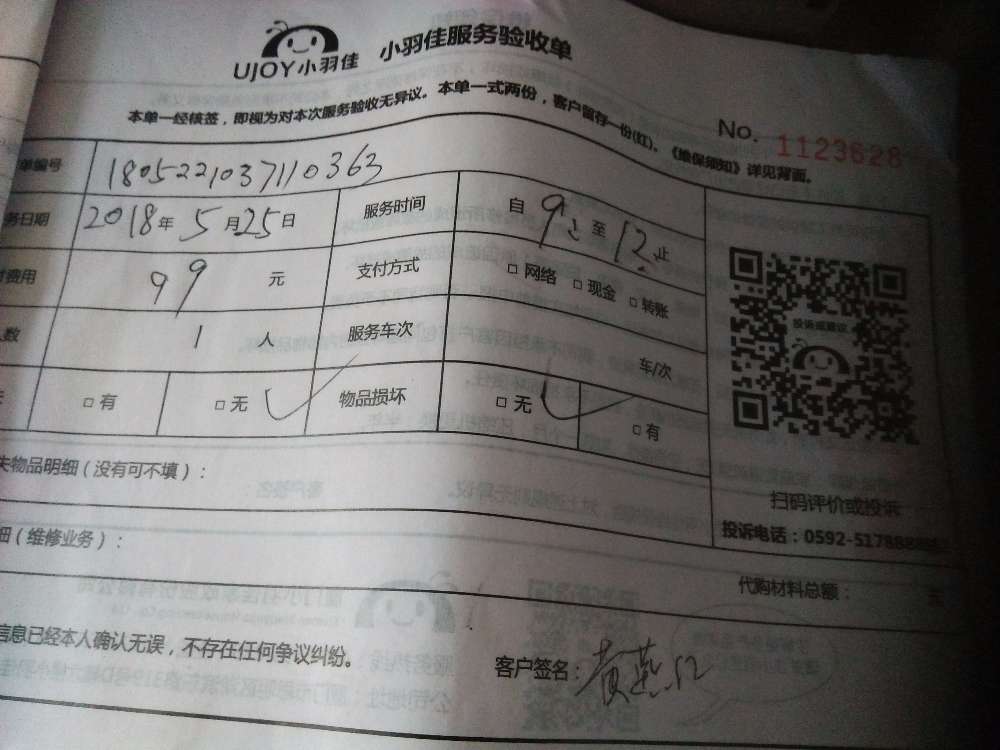 UJOY小羽佳 小羽佳服务验收单
本单一经核签，即视为对本次服务验收无异议。本单一式两份，客户留存一份(红)。《维保须知》详见背面。
No. 1123628
单编号 1805221037110363
务日期 2018年 5月25日 服务时间 自 9 至 12 止
费用 99 元 支付方式 □ 网络 □ 现金 □ 转账
数 1 人 服务车次 车/次
□ 有 □ 无 物品损坏 □ 无 □ 有
投诉或建议
扫码评价或投诉
投诉电话：0592-5178888
失物品明细（没有可不填）：
细（维修业务）：
代购材料总额： 元
信息已经本人确认无误，不存在任何争议纠纷。
客户签名：黄燕红